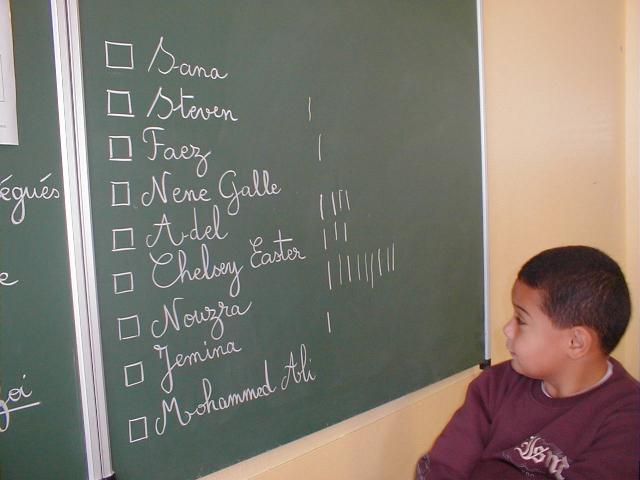 Sana
Steven |
Faez |
Nene Galle ||||
Adel |||
Chelsey Easter |||||||||
Nouzra |
Jemina
Mohammed Ali
égués
e
oi